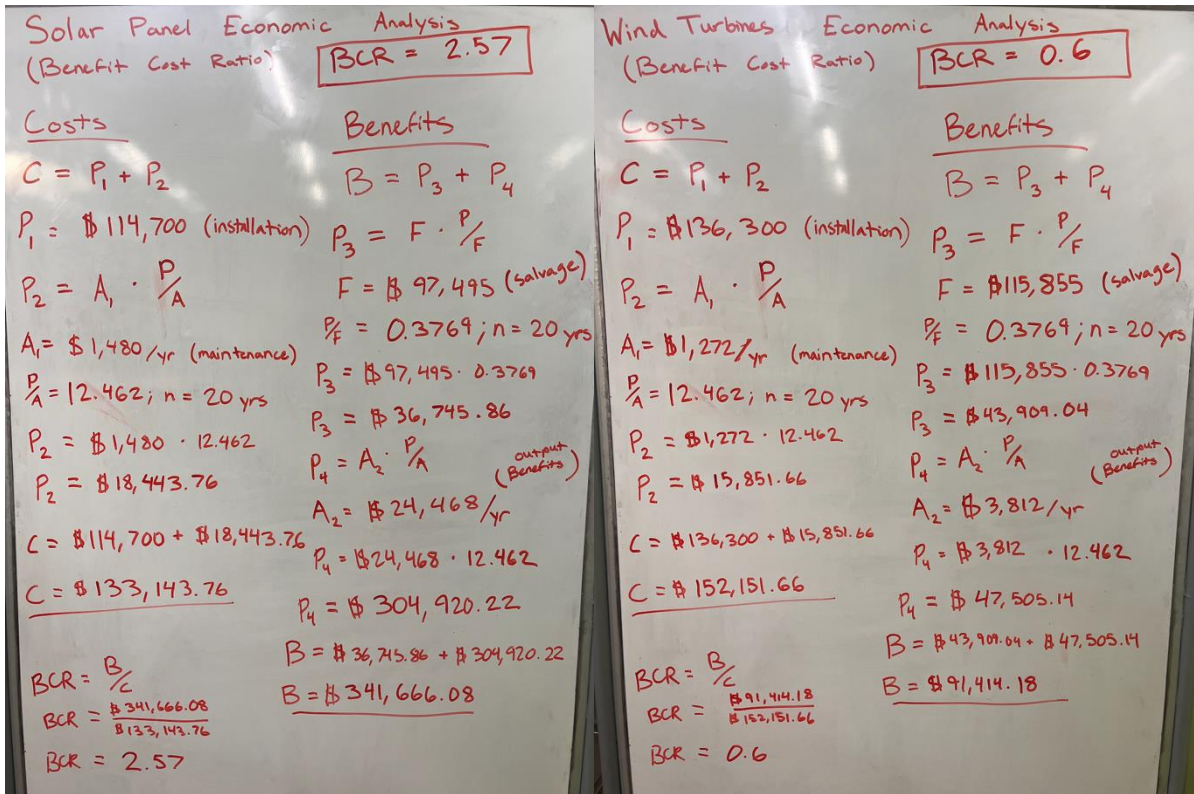 Solar Panel Economic Analysis
(Benefit Cost Ratio)
BCR = 2.57
Costs
C = P₁ + P₂
P₁ = $114,700 (installation)
P₂ = A₁ · P/A
A₁ = $1,480/yr (maintenance)
P/A = 12.462; n = 20 yrs
P₂ = $1,480 · 12.462
P₂ = $18,443.76
C = $114,700 + $18,443.76
C = $133,143.76
BCR = B/C
BCR = $341,666.08 / $133,143.76
BCR = 2.57
Benefits
B = P₃ + P₄
P₃ = F · P/F
F = $97,495 (salvage)
P/F = 0.3769; n = 20 yrs
P₃ = $97,495 · 0.3769
P₃ = $36,745.86
P₄ = A₂ · P/A (output Benefits)
A₂ = $24,468/yr
P₄ = $24,468 · 12.462
P₄ = $304,920.22
B = $36,745.86 + $304,920.22
B = $341,666.08
Wind Turbines Economic Analysis
(Benefit Cost Ratio)
BCR = 0.6
Costs
C = P₁ + P₂
P₁ = $136,300 (installation)
P₂ = A₁ · P/A
A₁ = $1,272/yr (maintenance)
P/A = 12.462; n = 20 yrs
P₂ = $1,272 · 12.462
P₂ = $15,851.66
C = $136,300 + $15,851.66
C = $152,151.66
BCR = B/C
BCR = $91,414.18 / $152,151.66
BCR = 0.6
Benefits
B = P₃ + P₄
P₃ = F · P/F
F = $115,855 (salvage)
P/F = 0.3769; n = 20 yrs
P₃ = $115,855 · 0.3769
P₃ = $43,909.04
P₄ = A₂ · P/A (output Benefits)
A₂ = $3,812/yr
P₄ = $3,812 · 12.462
P₄ = $47,505.14
B = $43,909.04 + $47,505.14
B = $91,414.18